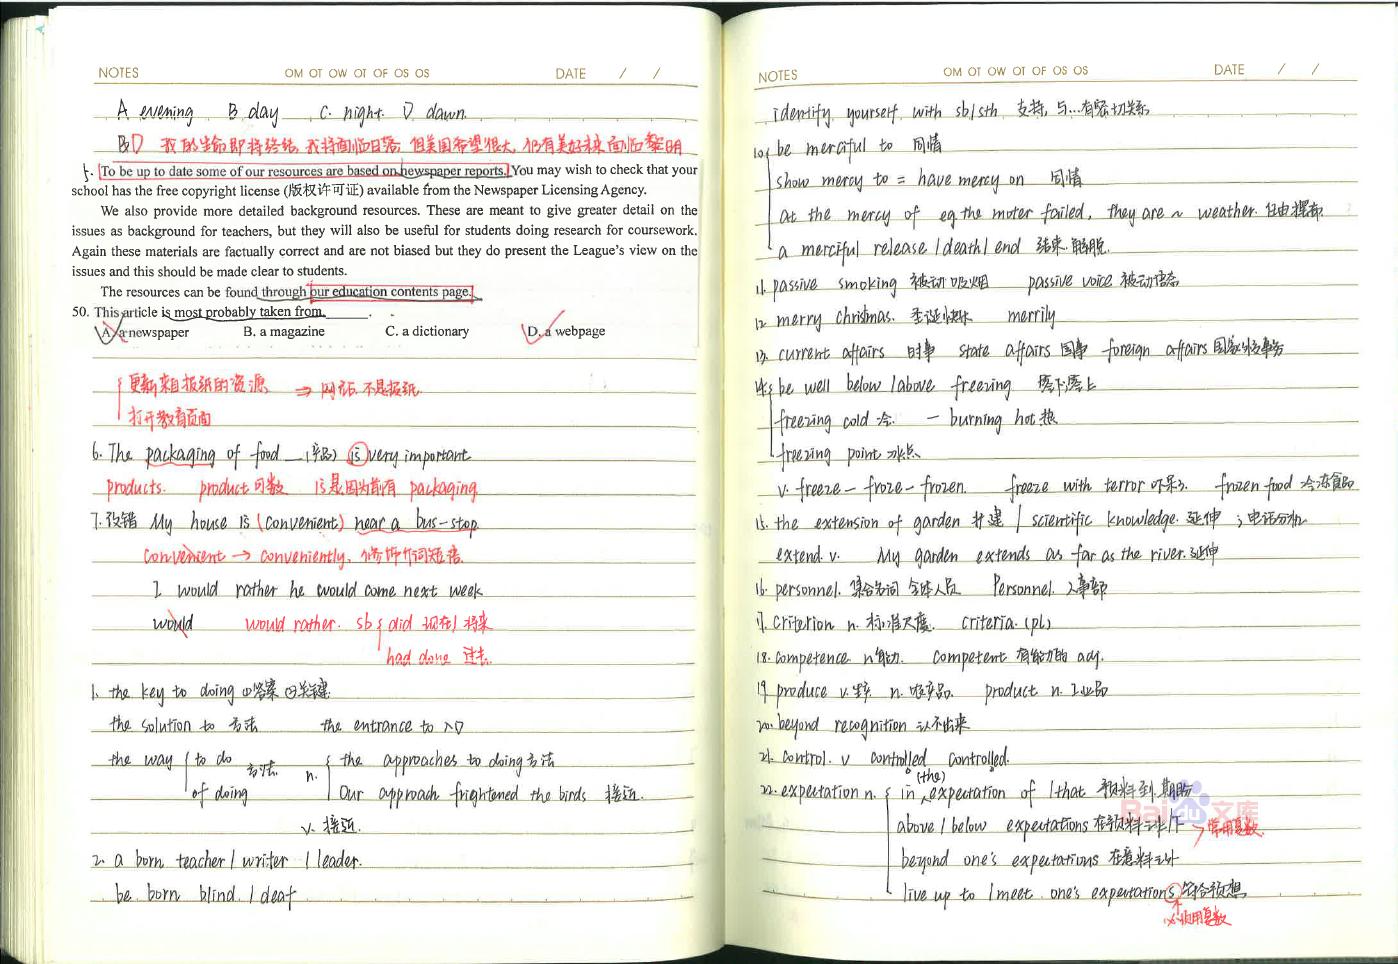 NOTES OM OT OW OT OF OS OS DATE / /
A evening B day C. night. D dawn.
B D 我的生命即将终结,我将面临日落,但美国希望很大,仍有美好未来面临黎明
5. To be up to date some of our resources are based on newspaper reports. You may wish to check that your
school has the free copyright license (版权许可证) available from the Newspaper Licensing Agency.
We also provide more detailed background resources. These are meant to give greater detail on the
issues as background for teachers, but they will also be useful for students doing research for coursework.
Again these materials are factually correct and are not biased but they do present the League's view on the
issues and this should be made clear to students.
The resources can be found through our education contents page.
50. This article is most probably taken from ______.
A. a newspaper B. a magazine C. a dictionary D. a webpage
更新来自报纸的资源 ⇒ 网站.不是报纸.
打开教育页面
6. The packaging of food __(产品) is very important
products. product可数 is是因为前有 packaging
7. 改错 My house is (convenient) near a bus-stop.
convenient → conveniently, 修饰介词短语.
I would rather he would come next week
would would rather. sb { did 现在/将来
had done 过去.
1. the key to doing ①答案 ②关键.
the solution to 方法 the entrance to 入口
the way { to do 方法. n. { the approaches to doing 方法
of doing Our approach frightened the birds 接近.
v. 接近.
2. a born teacher / writer / leader.
be born blind / deaf
NOTES OM OT OW OT OF OS OS DATE / /
identify yourself with sb/sth 支持, 与...有密切关系
10. be merciful to 同情
show mercy to = have mercy on 同情
at the mercy of eg. the moter failed, they are ~ weather. 任由摆布
a merciful release / death / end 结束.解脱.
11. passive smoking 被动吸烟 passive voice 被动语态
12. merry christmas. 圣诞快乐 merrily
13. current affairs 时事 state affairs 国事 foreign affairs 国家外交事务
14. be well below / above freezing 零下零上
freezing cold 冷. — burning hot 热
freezing point 冰点
v. freeze - froze - frozen. freeze with terror 吓呆了 frozen food 冷冻食品
15. the extension of garden 扩建 / scientific knowledge. 延伸 ; 电话分机
extend. v. My garden extends as far as the river. 延伸
16. personnel. 集合名词 全体人员 Personnel. 人事部
17. criterion n. 标准尺度. criteria. (pl)
18. competence n 能力. competent 有能力的 adj.
19. produce v. 生产 n. 农产品. product n. 工业品
20. beyond recognition 认不出来
21. control. v controlled controlled.
22. expectation n. { in (the) expectation of / that 预料到, 期盼
above / below expectations 在预料之上/下 → 常用复数
beyond one's expectations 在意料之外
live up to / meet one's expectations 符合预想
必用复数
Baidu 文库